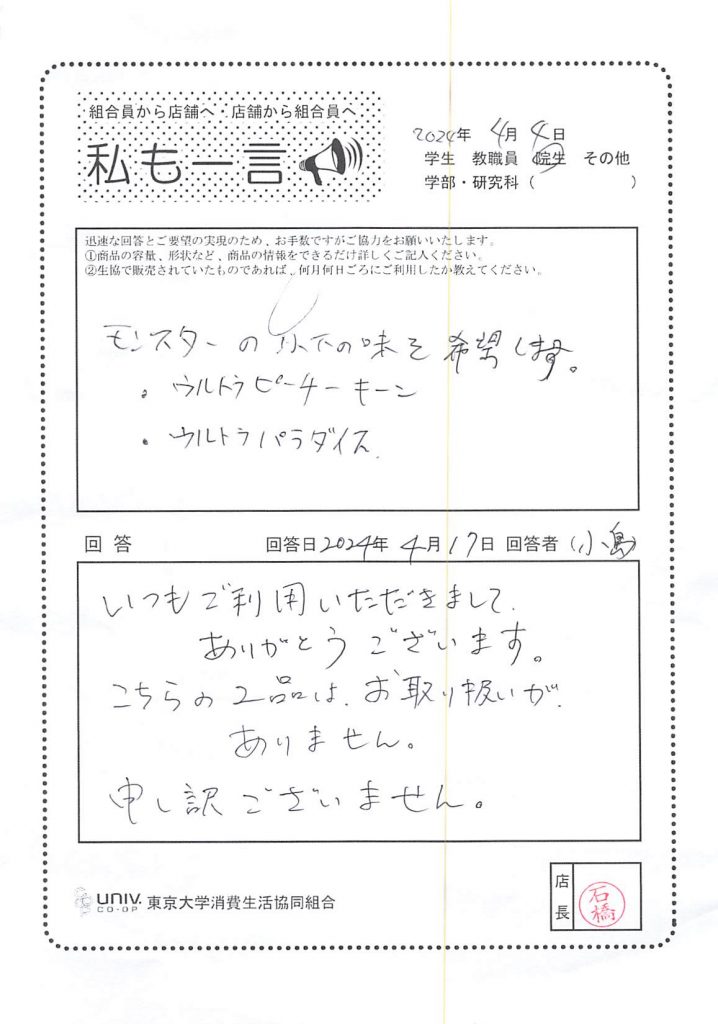 組合員から店舗へ・店舗から組合員へ
私も一言
2024年 4月 4日
学生 教職員 院生 その他
学部・研究科( )
迅速な回答とご要望の実現のため、お手数ですがご協力をお願いいたします。
①商品の容量、形状など、商品の情報をできるだけ詳しくご記入ください。
②生協で販売されていたものであれば、何月何日ごろにご利用したか教えてください。
モンスターの以下の味を希望します。
・ウルトラピーチーキーン
・ウルトラパラダイス
回答 回答日2024年 4月 17日 回答者(小島)
いつもご利用いただきまして、
ありがとうございます。
こちらの2品は、お取り扱いが、
ありません。
申し訳ございません。
UNIV. CO-OP 東京大学消費生活協同組合
店長 石橋